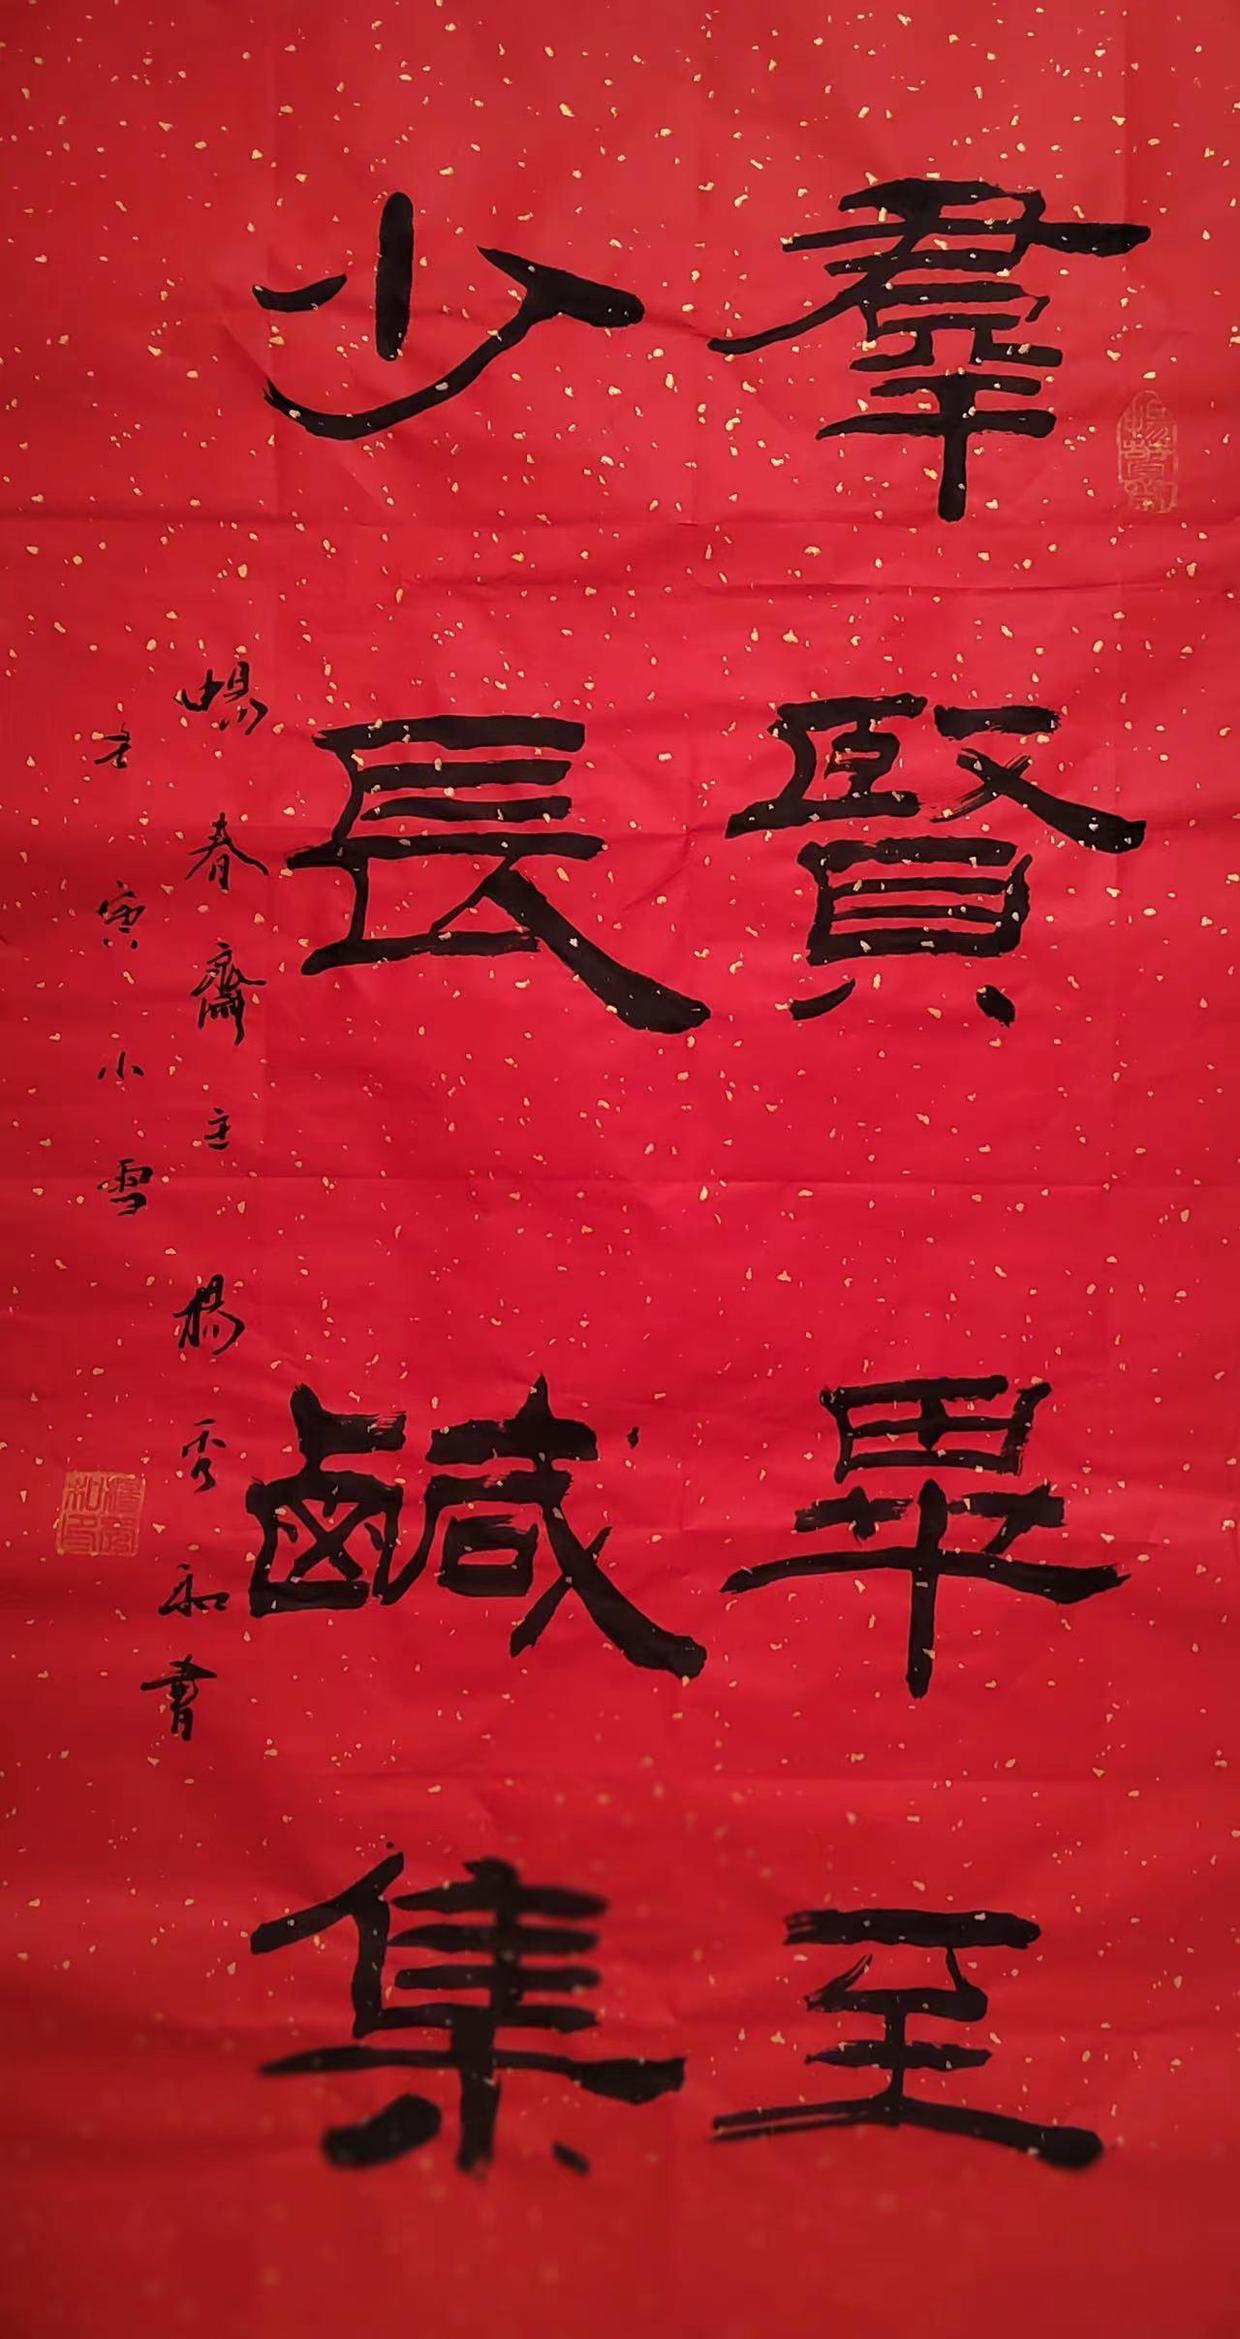 羣賢畢至
少長鹹集
暢春齋主楊秀和書
寅小雪